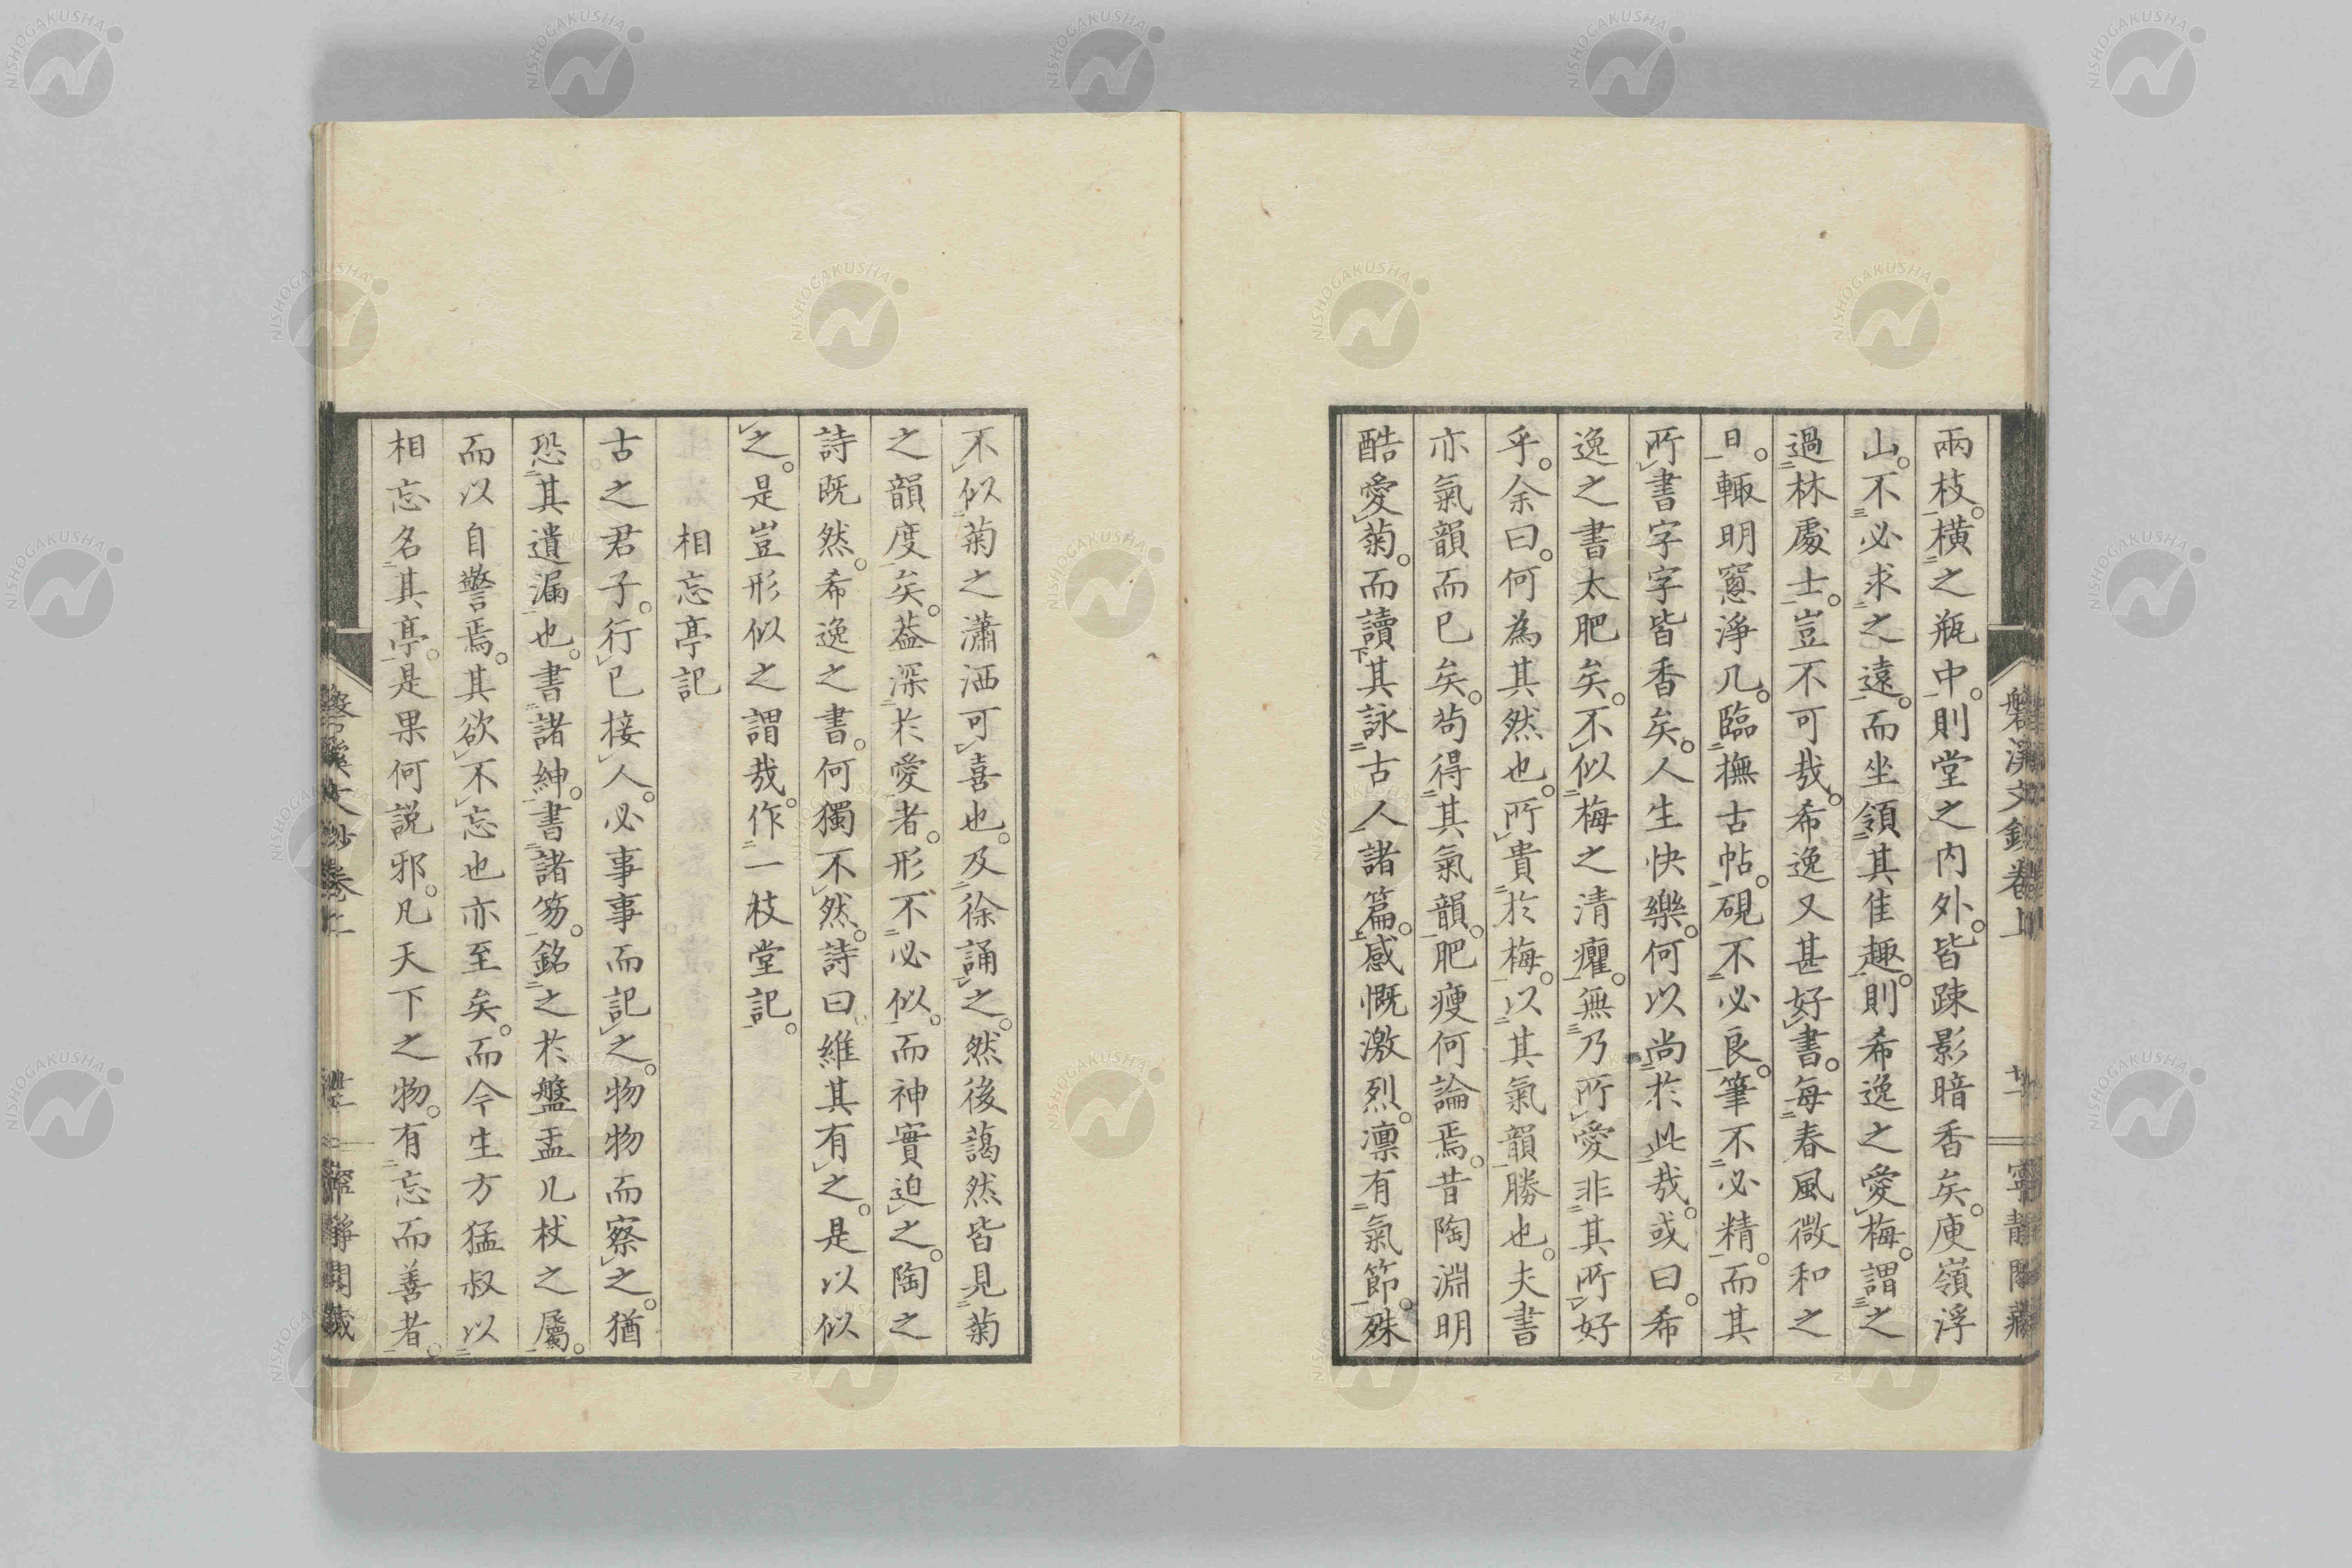 兩枝。橫之瓶中。則堂之內外。皆踈影暗香矣。庾嶺浮
山。不必求之遠。而坐領其佳趣。則希逸之愛梅。謂之
過林處士。豈不可哉。希逸又甚好書。每春風微和之
日。輙明窻淨几。臨撫古帖。硯不必良。筆不必精。而其
所書字字皆香矣。人生快樂。何以尚於此哉。或曰。希
逸之書太肥矣。不似梅之清癯。無乃所愛非其所好
乎。余曰。何為其然也。所貴於梅。以其氣韻勝也。夫書
亦氣韻而已矣。苟得其氣韻。肥瘦何論焉。昔陶淵明
酷愛菊。而讀其詠古人諸篇。感慨激烈。凛有氣節。殊
不似菊之瀟洒可喜也。及徐誦之。然後藹然皆見菊
之韻度矣。葢深於愛者。形不必似。而神實迫之。陶之
詩既然。希逸之書。何獨不然。詩曰維其有之。是以似
之。是豈形似之謂哉。作一枝堂記。
相忘亭記
古之君子。行已接人。必事事而記之。物物而察之。猶
恐其遺漏也。書諸紳。書諸笏。銘之於盤盂几杖之屬。
而以自警焉。其欲不忘也亦至矣。而今生方猛叔以
相忘名其亭。是果何説邪。凡天下之物。有忘而善者。
磐溪文鈔卷上
寧靜閣藏
NISHOGAKUSHA